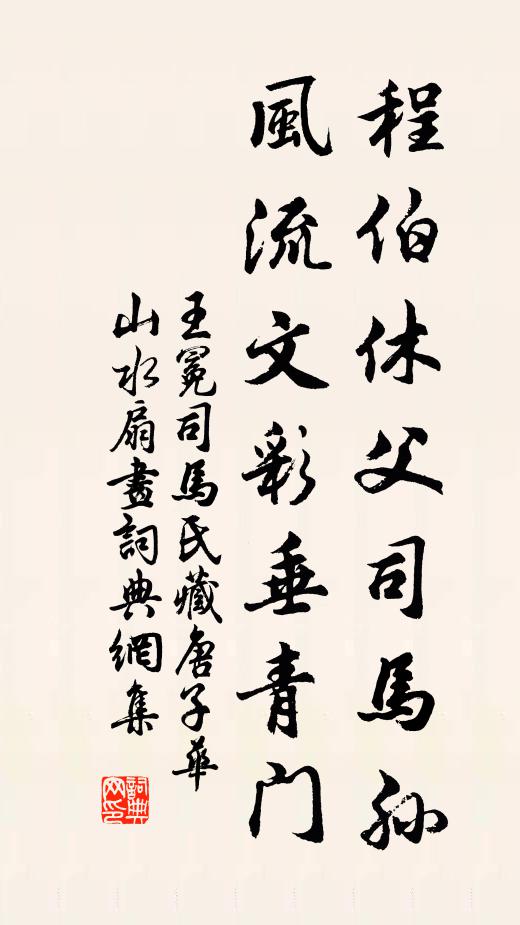 程伯休父司馬孫
風流文彩垂青门
王冕司馬氏藏唐子華
山水扇畫詞典網集
詞典网印